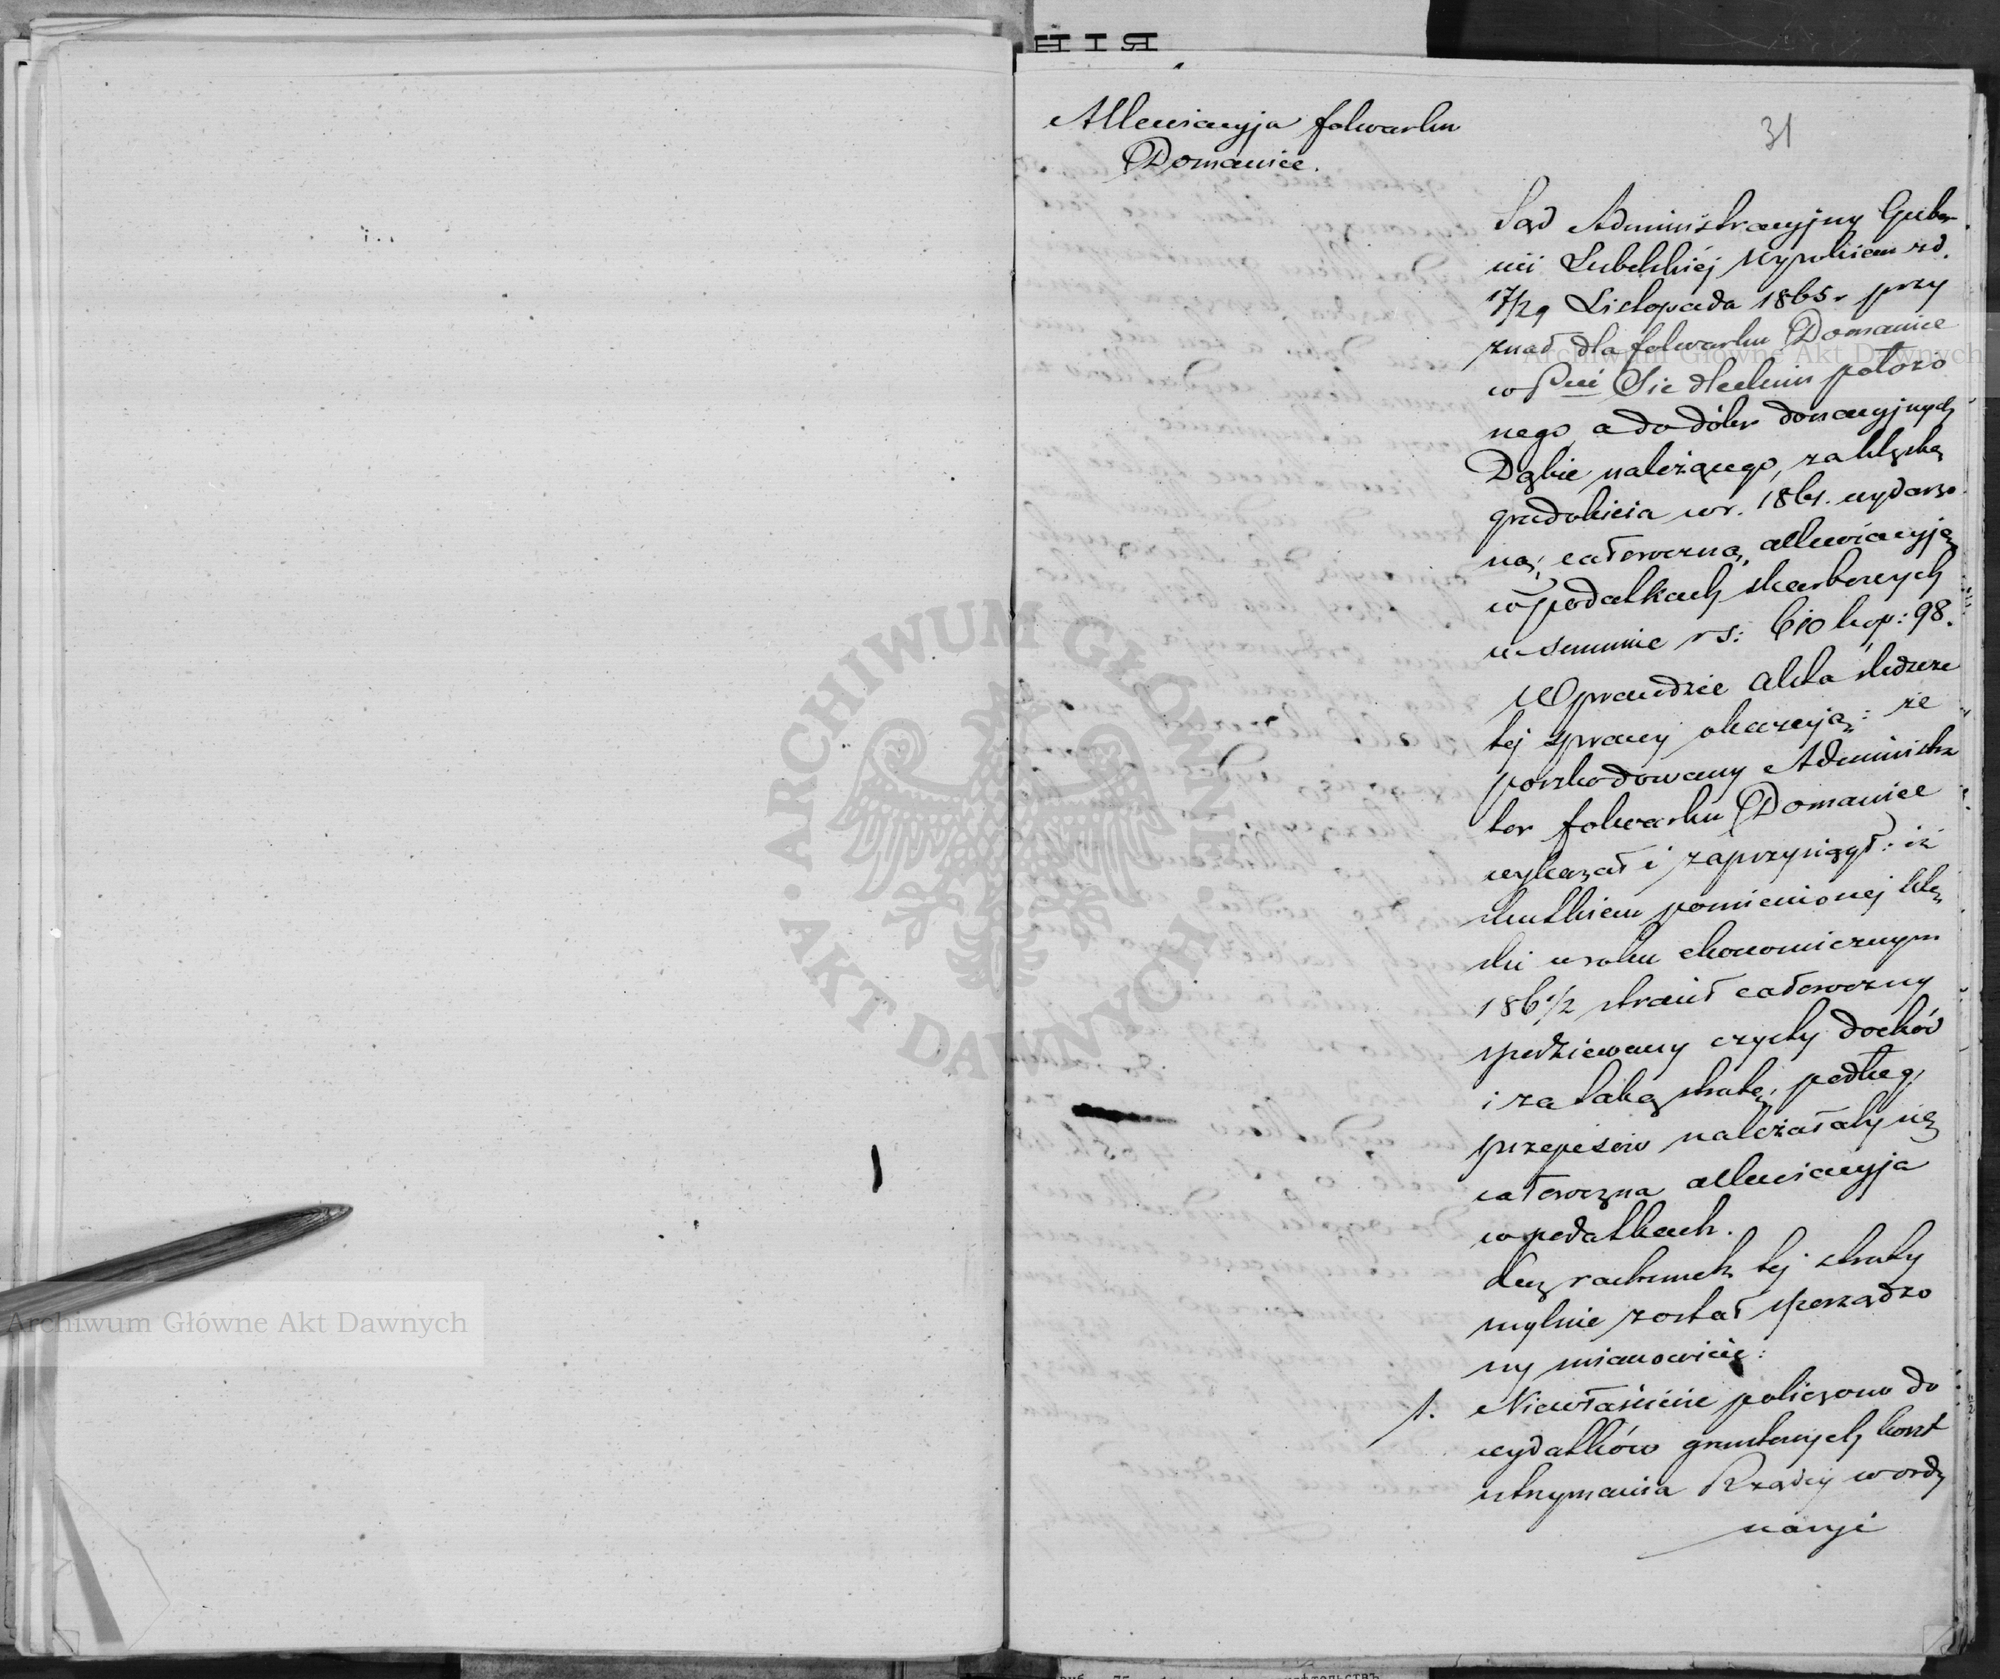 НІЯ
Allewiacyja folwarku
Domanice.
31
Sąd Administracyjny Guber
nii Lubelskiéj Wyrokiem zd.
17/29 Listopada 1865 r przy
znał dla folwarku Domanice
w Pcie Siedleckim położo
nego a do dóbr donacyjnych
Dąbie należącego, za klęskę
gradobicia w r. 1861. wydarzo
ną, całoroczną allewiacyją
w podatkach skarbowych
w summie rs: 610 kop: 98.
Wprawdzie akta śledcze
tej sprawy okazują: że
poszkodowany Administra
tor folwarku Domanice
wykazał i zaprzysiągł: iż
skutkiem pomienionej klę
ski w roku ekonomicznym
1861/2 stracił całoroczny
spodziewany czysty dochód
i za taką stratę, podług
przepisów należałaby się
całoroczna allewiacyja
w podatkach.
Lecz rachunek tej straty
mylnie został sporządzo
ny mianowicie:
1. Niewłaściwie policzono do
wydatków gruntowych koszt
utrzymania Rządcy w ordy
naryi
ARCHIWUM GŁÓWNE · AKT DAWNYCH ·
Archiwum Główne Akt Dawnych
Archiwum Główne Akt Dawnych